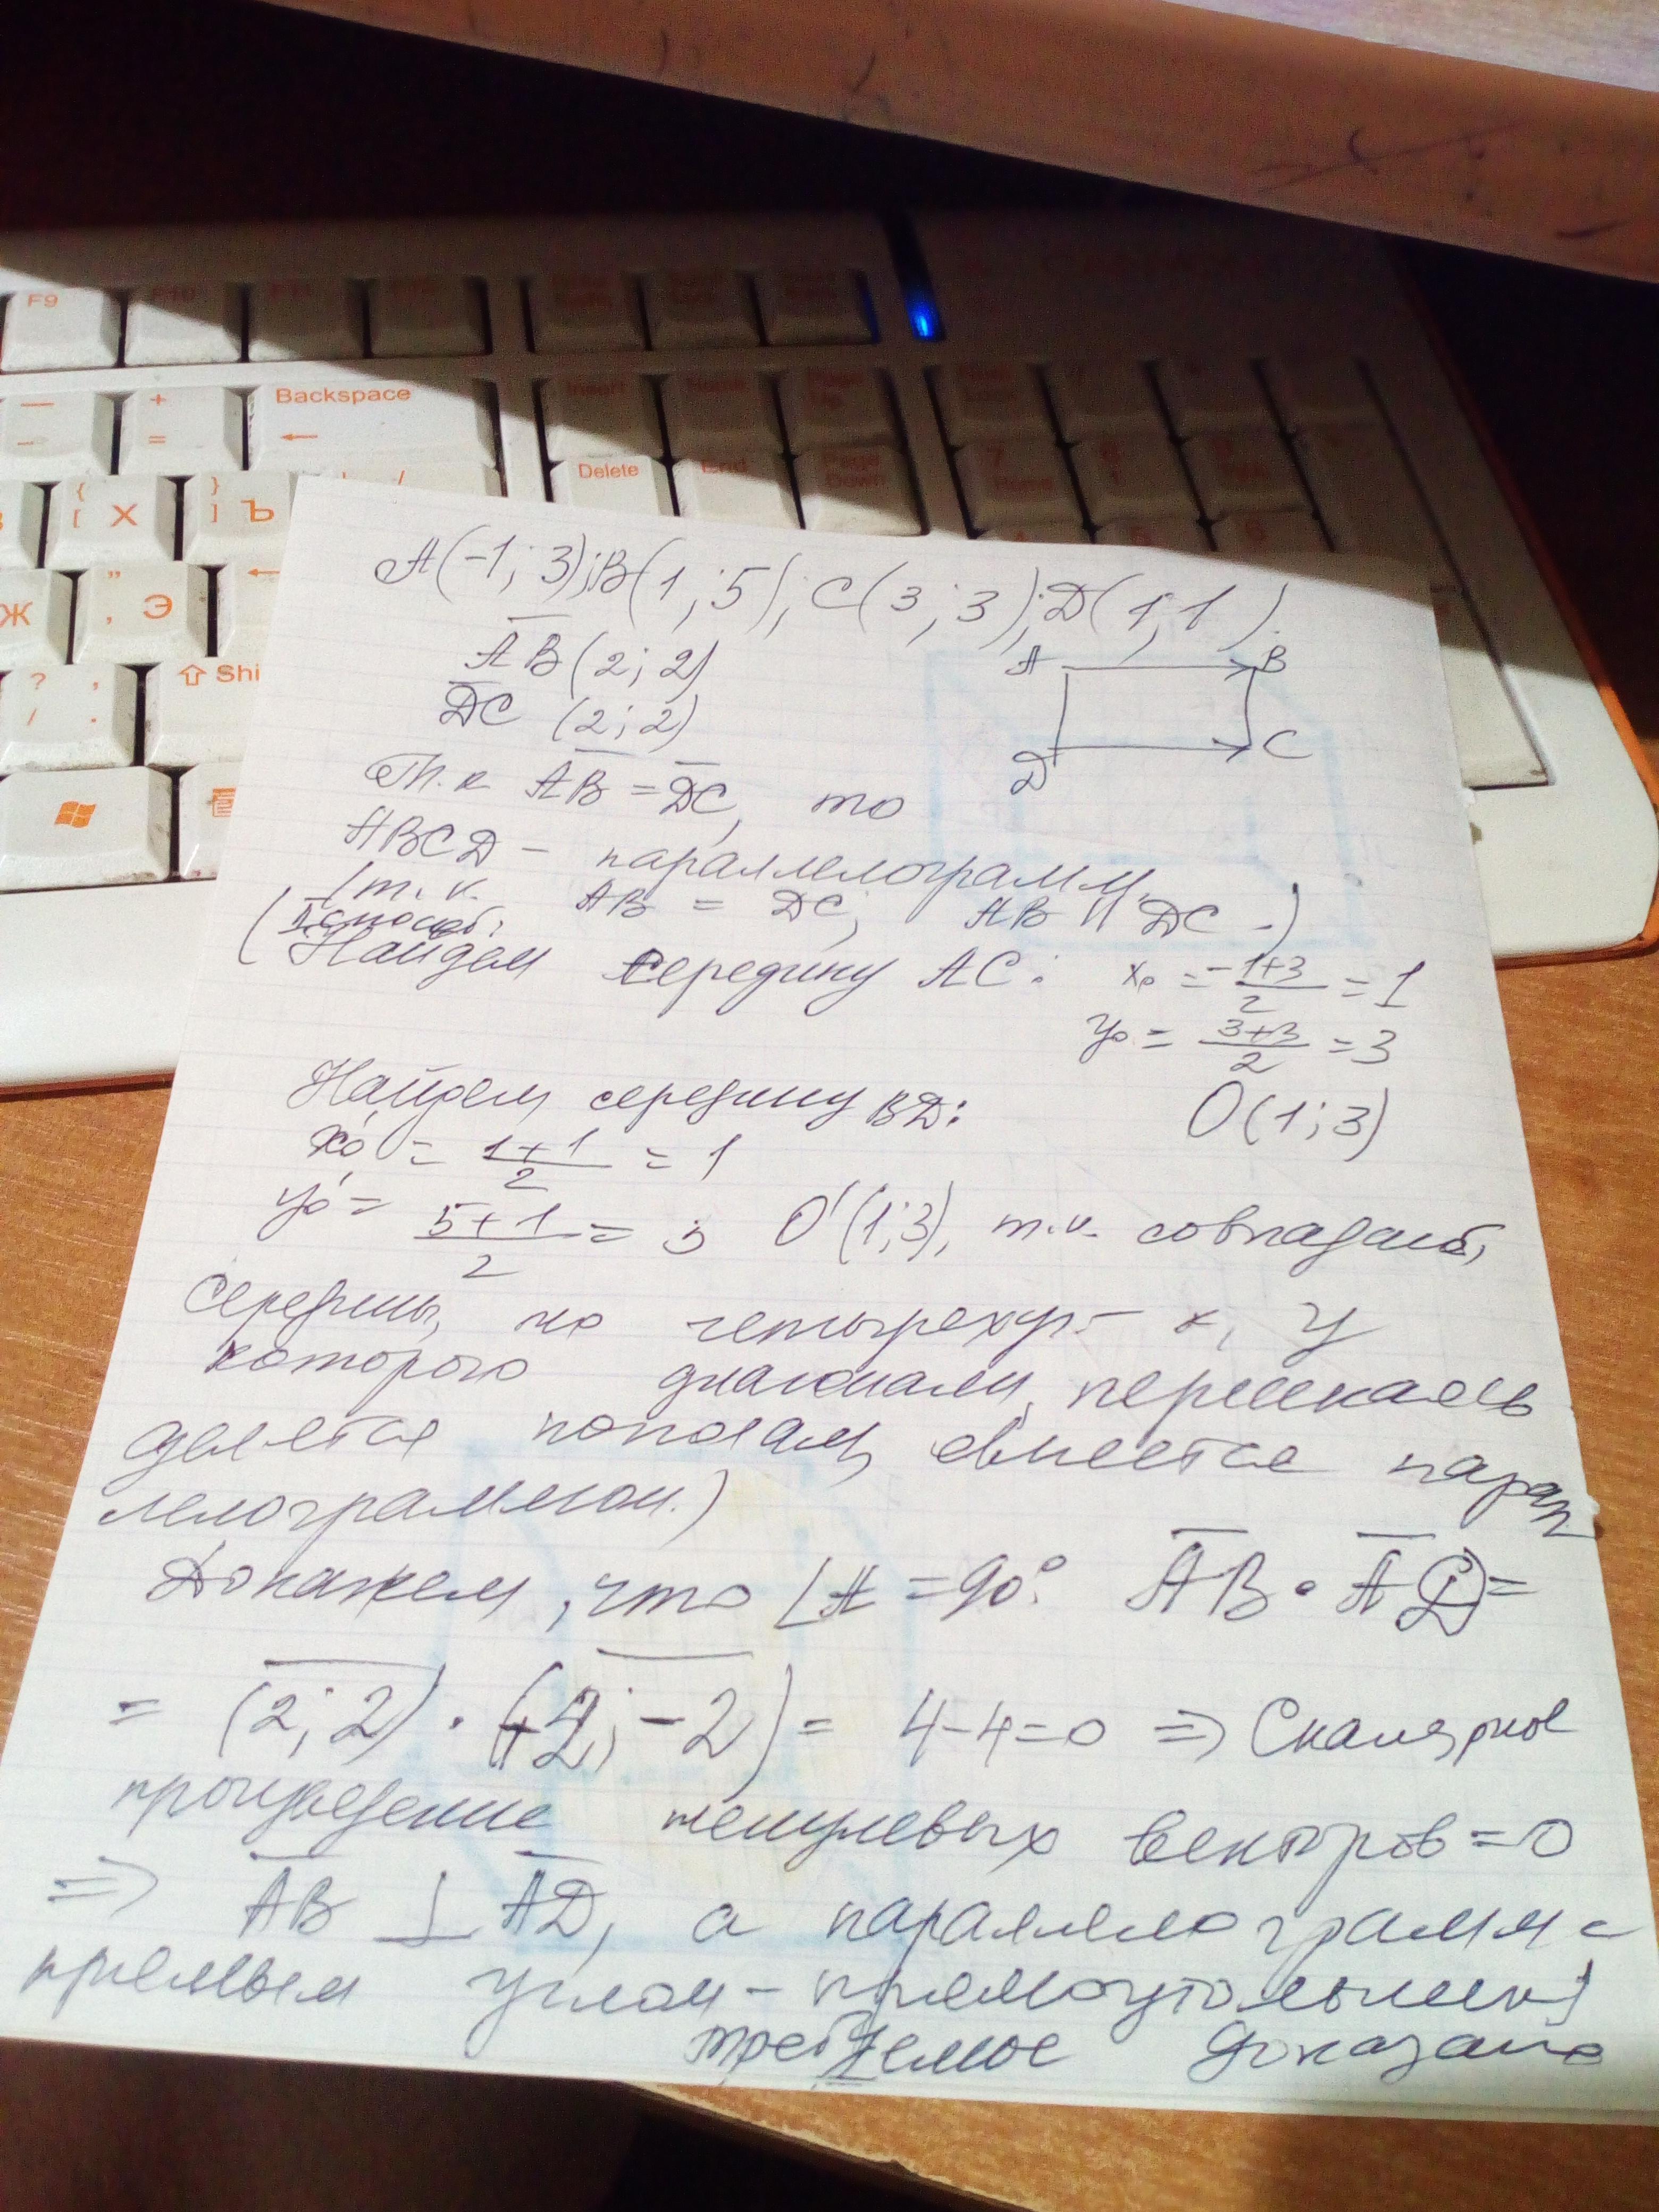 F9
Backspace
+
=
Insert
Delete
End
Page Down
{ [ Х
} ] Ъ
Ж
" , Э
Shi
? / , .
А(-1; 3); В(1; 5); С(3; 3); D(1; 1).
AB (2; 2)
DC (2; 2)
А В
D С
Т.к AB = DC, то
ABCD - параллелограмм
(т. к. AB = DC; AB || DC.)
(II способ.
Найдем середину AC: x₀ = -1+3/2 = 1
y₀ = 3+3/2 = 3
Найдем середину BD: O(1; 3)
x₀' = 1+1/2 = 1
y₀' = 5+1/2 = 3 O'(1; 3), т.к. совпадают
середины, то четырехуг-к, у
которого диагонали, пересекаясь
делятся пополам, является парал
лелограммом.)
Докажем, что ∠A = 90°. AB · AD =
= (2; 2) · (+2; -2) = 4-4=0 => Скалярное
произведение ненулевых векторов = 0
=> AB ⊥ AD, а параллелограмм с
прямым углом - прямоугольник,
требуемое доказано